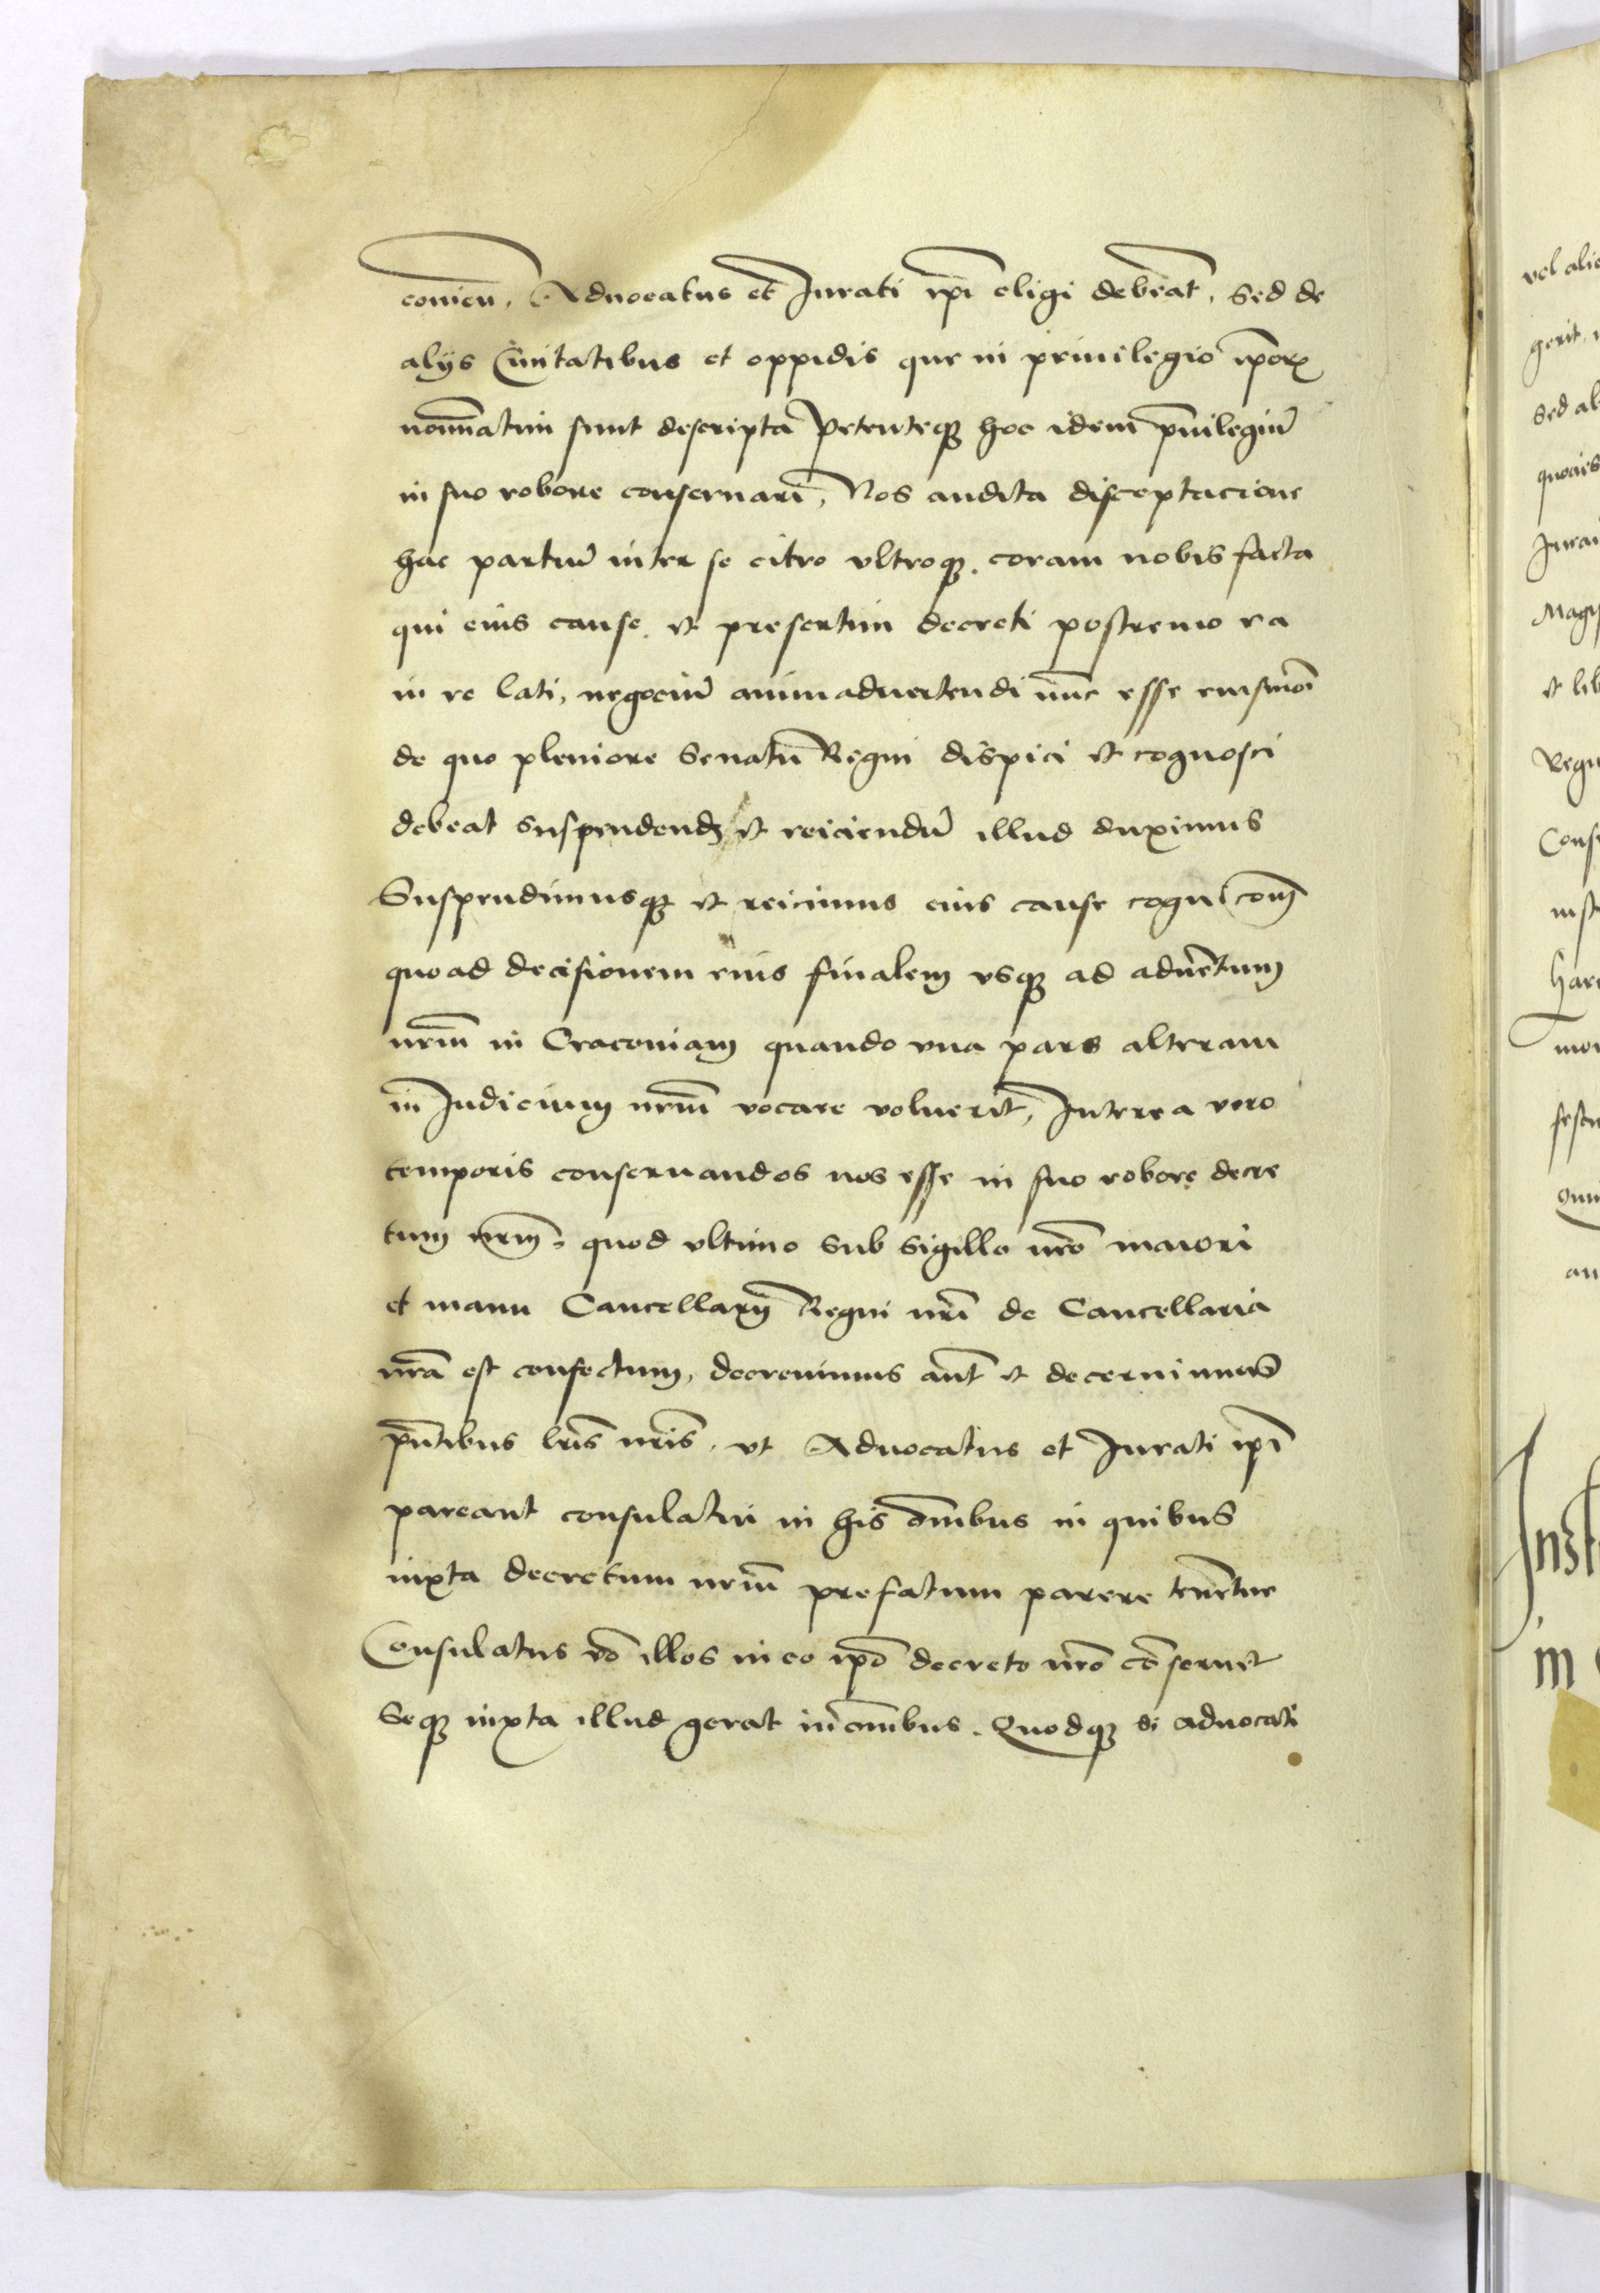 Aduocatus et Iurati ip̄i eligi debeāt, Sed de
alijs Ciuitatibus et oppidis que in priuilegio ip̄orꝝ
nominatim sunt descripta Petenteqꝫ hoc idem p̄uilegiū
in suo robore conseruari, Nos audita disceptacione
hac partiū inter se citro vltroqꝫ coram nobis facta
qui eius cause et presertim decreti postremo ea
in re lati, negociū animaduertendi nūc esse eiusmōi
de quo pleniore Senatu Regni dispici et cognosci
debeat suspendendꝫ et reiciendū illud duximus
Suspendimusqꝫ et reicimus eius cause
quoad decisionem eius finalem vsqꝫ ad aduētum
nr̄m in Cracouiam quando vna pars alteram
in Iudicium nr̄m vocare voluerit, Interea vero
temporis conseruandos nos esse in suo robore decre
tum nr̄m quod vltimo sub Sigillo nr̄o maiori
et manu Cancellarij Regni nr̄i de Cancellaria
nr̄a est confectum, decreuimus aūt et decernimus
p̄ntibus lr̄is nr̄is, vt Aduocatus et Iurati ip̄i
pareant consulatui in his om̄ibus in quibus
iuxta decretum nr̄m prefatum parere tenētur
Consulatus vō illos in eo ip̄o decreto nr̄o cōseruet
Seqꝫ iuxta illud gerat in om̄ibus. Quodqꝫ si aduocati
vel
gerit
Sed
Magis
et
in